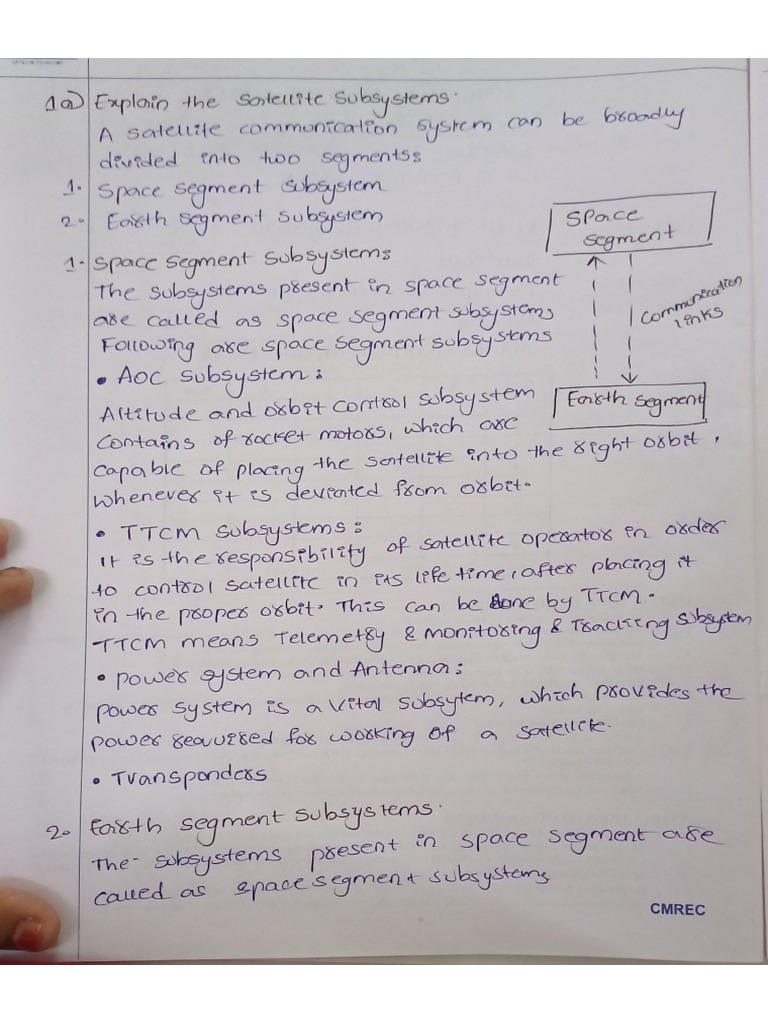 1a) Explain the satellite subsystems.
A satellite communication system can be broadly
divided into two segments:
1. Space segment subsystem
2. Earth segment subsystem
Space
segment
1. Space segment subsystems
The subsystems present in space segment
are called as space segment subsystems
Following are space segment subsystems
communication
links
• AOC subsystem:
Earth segment
Altitude and orbit control subsystem
contains of rocket motors, which are
capable of placing the satellite into the right orbit,
whenever it is deviated from orbit.
• TTCM subsystems:
It is the responsibility of satellite operator in order
to control satellite in its life time, after placing it
in the proper orbit. This can be done by TTCM.
TTCM means Telemetry & monitoring & Tracking subsystem
• power system and Antenna:
power system is a vital subsytem, which provides the
power reauired for working of a satellite.
• Transponders
2. Earth segment subsystems.
The subsystems present in space segment are
called as space segment subsystems
CMREC